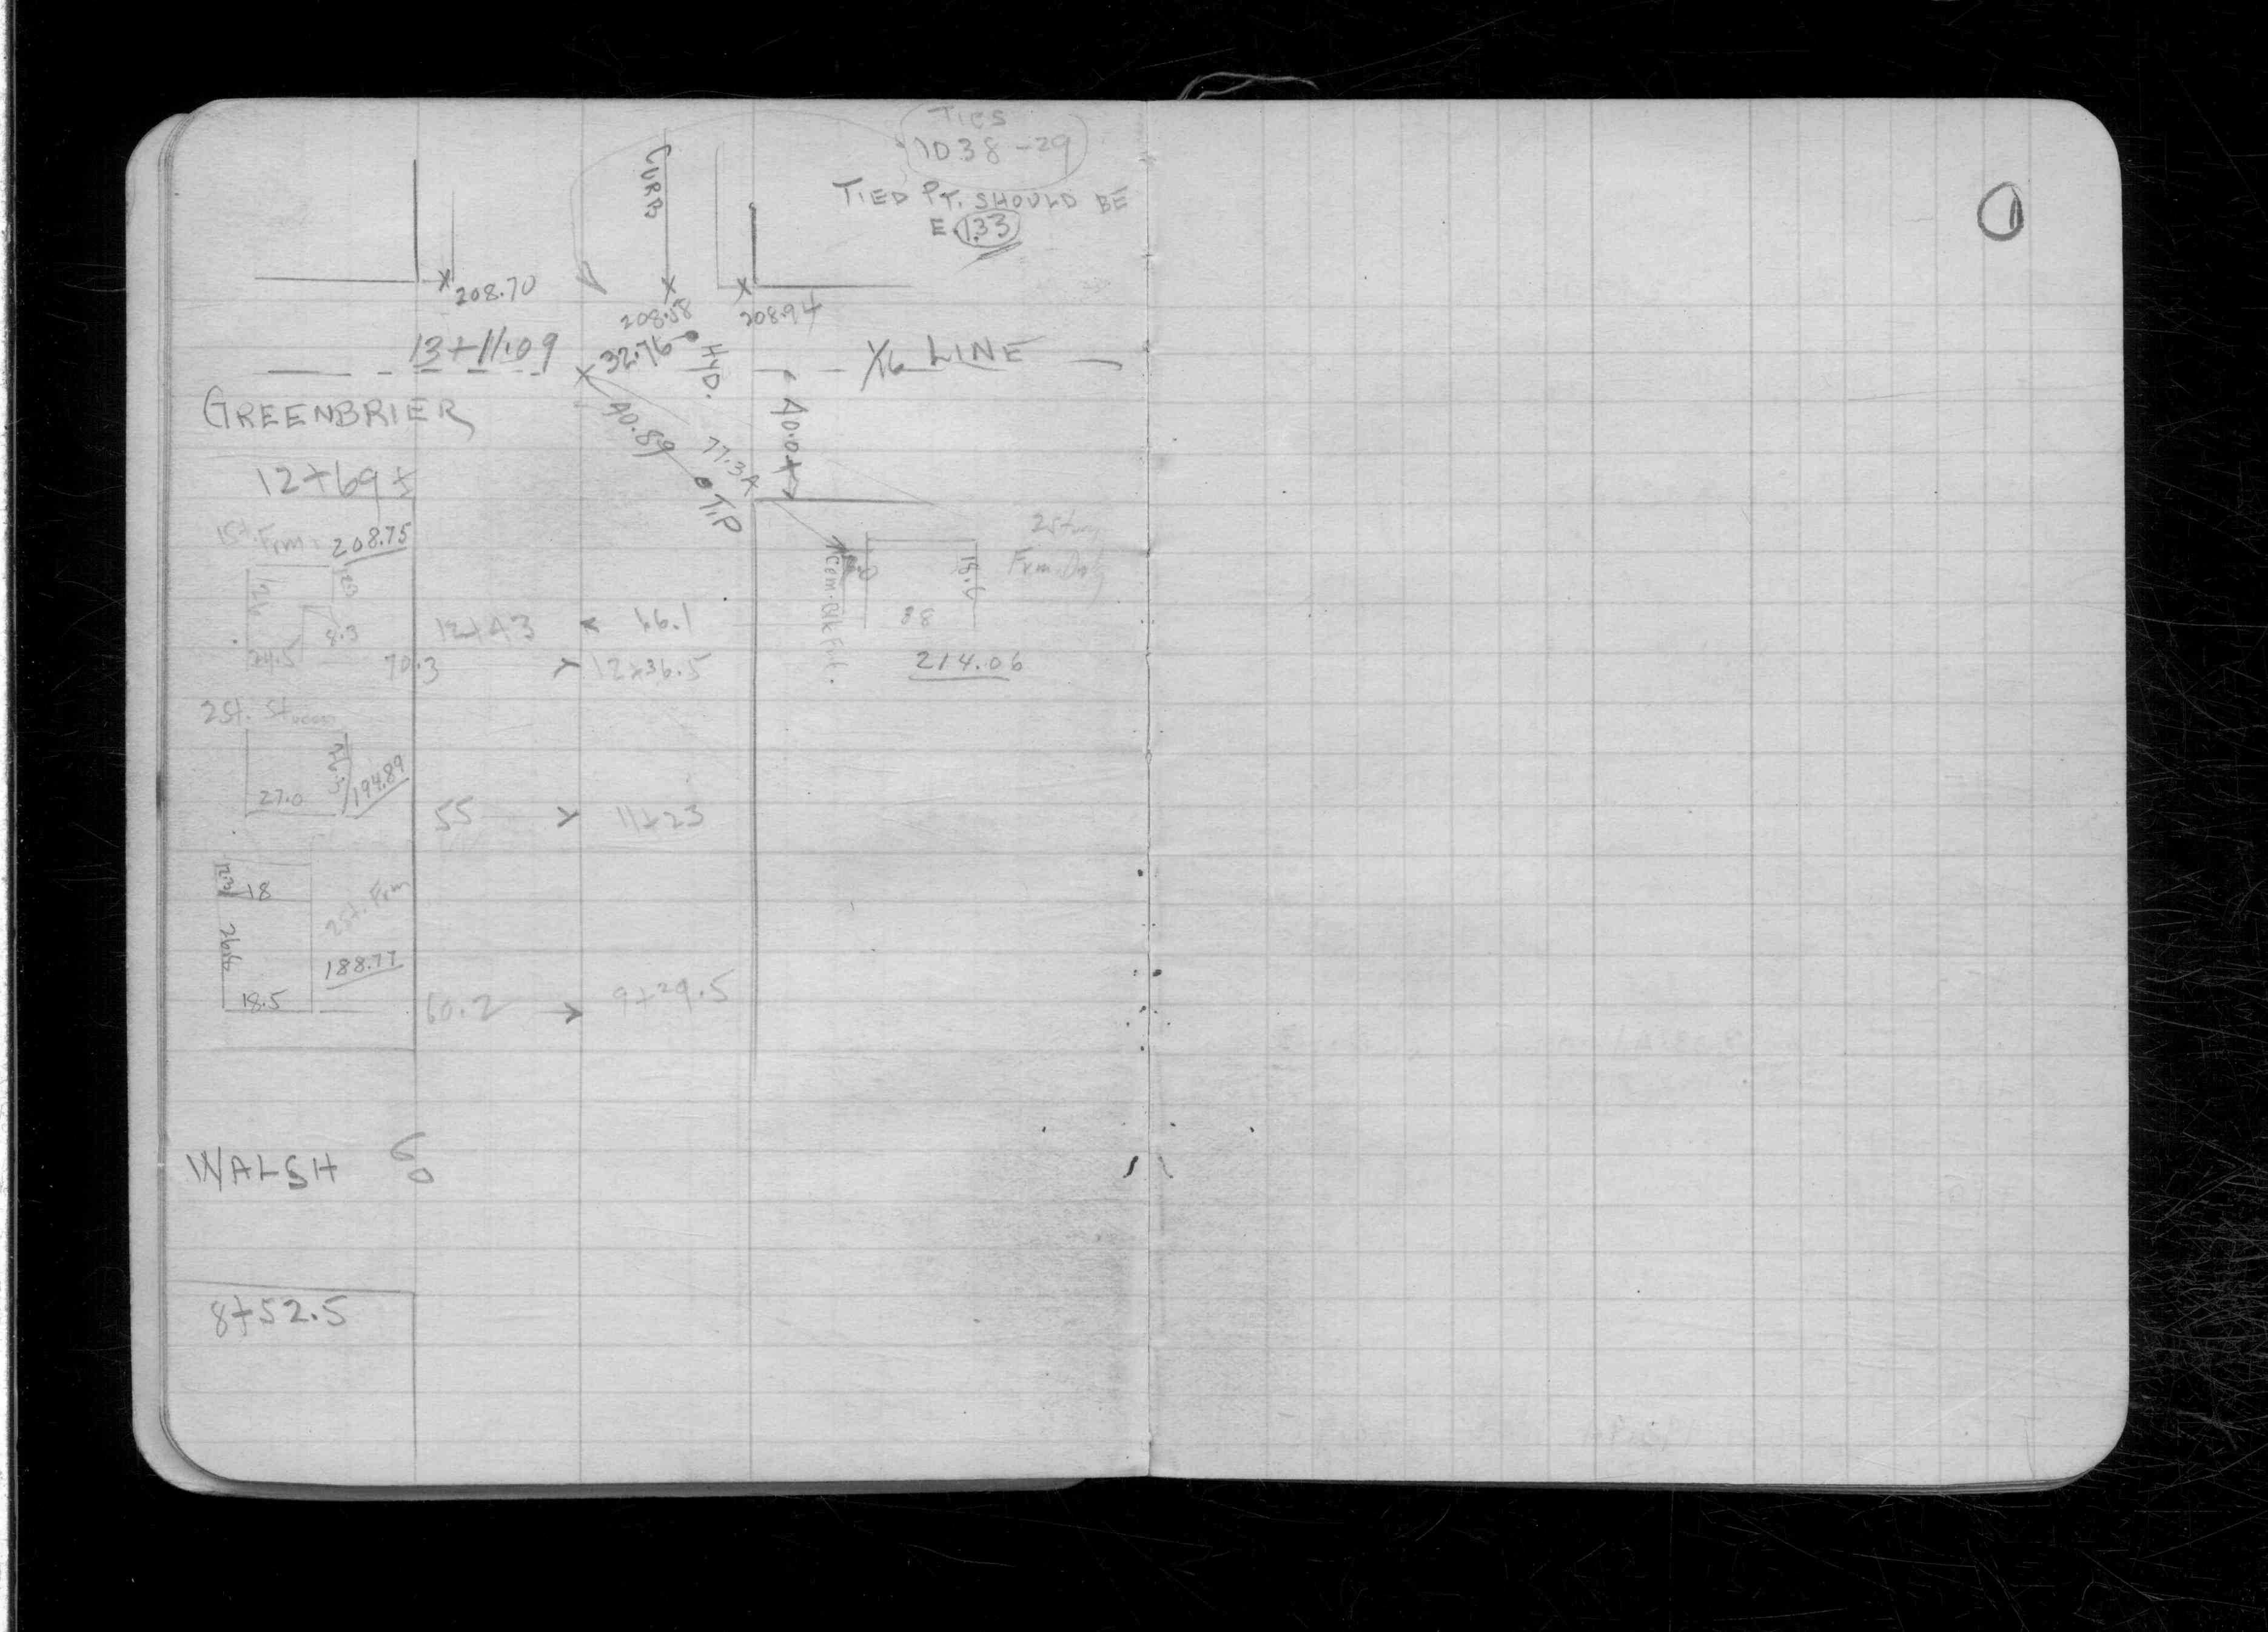 TIES
1038-29
TIED PT. SHOULD BE
E. 133
CURB
208.70
208.58
208.94
13+11.09
32.76
HYD.
1/16 LINE
GREENBRIER
40.89
77.3
40.0±
T.P
12+69±
1St. Frm.
208.75
24.5
8.3
12+43 < 66.1
70.3 > 12+36.5
Com. Blk Fnt.
18.6
88
214.06
2 Story
Frm. Dwg
2St.
27.0
194.89
55 > 11+23
18
2St. Frm
188.77
18.5
60.2 → 9+29.5
WALSH 60
8+52.5
1